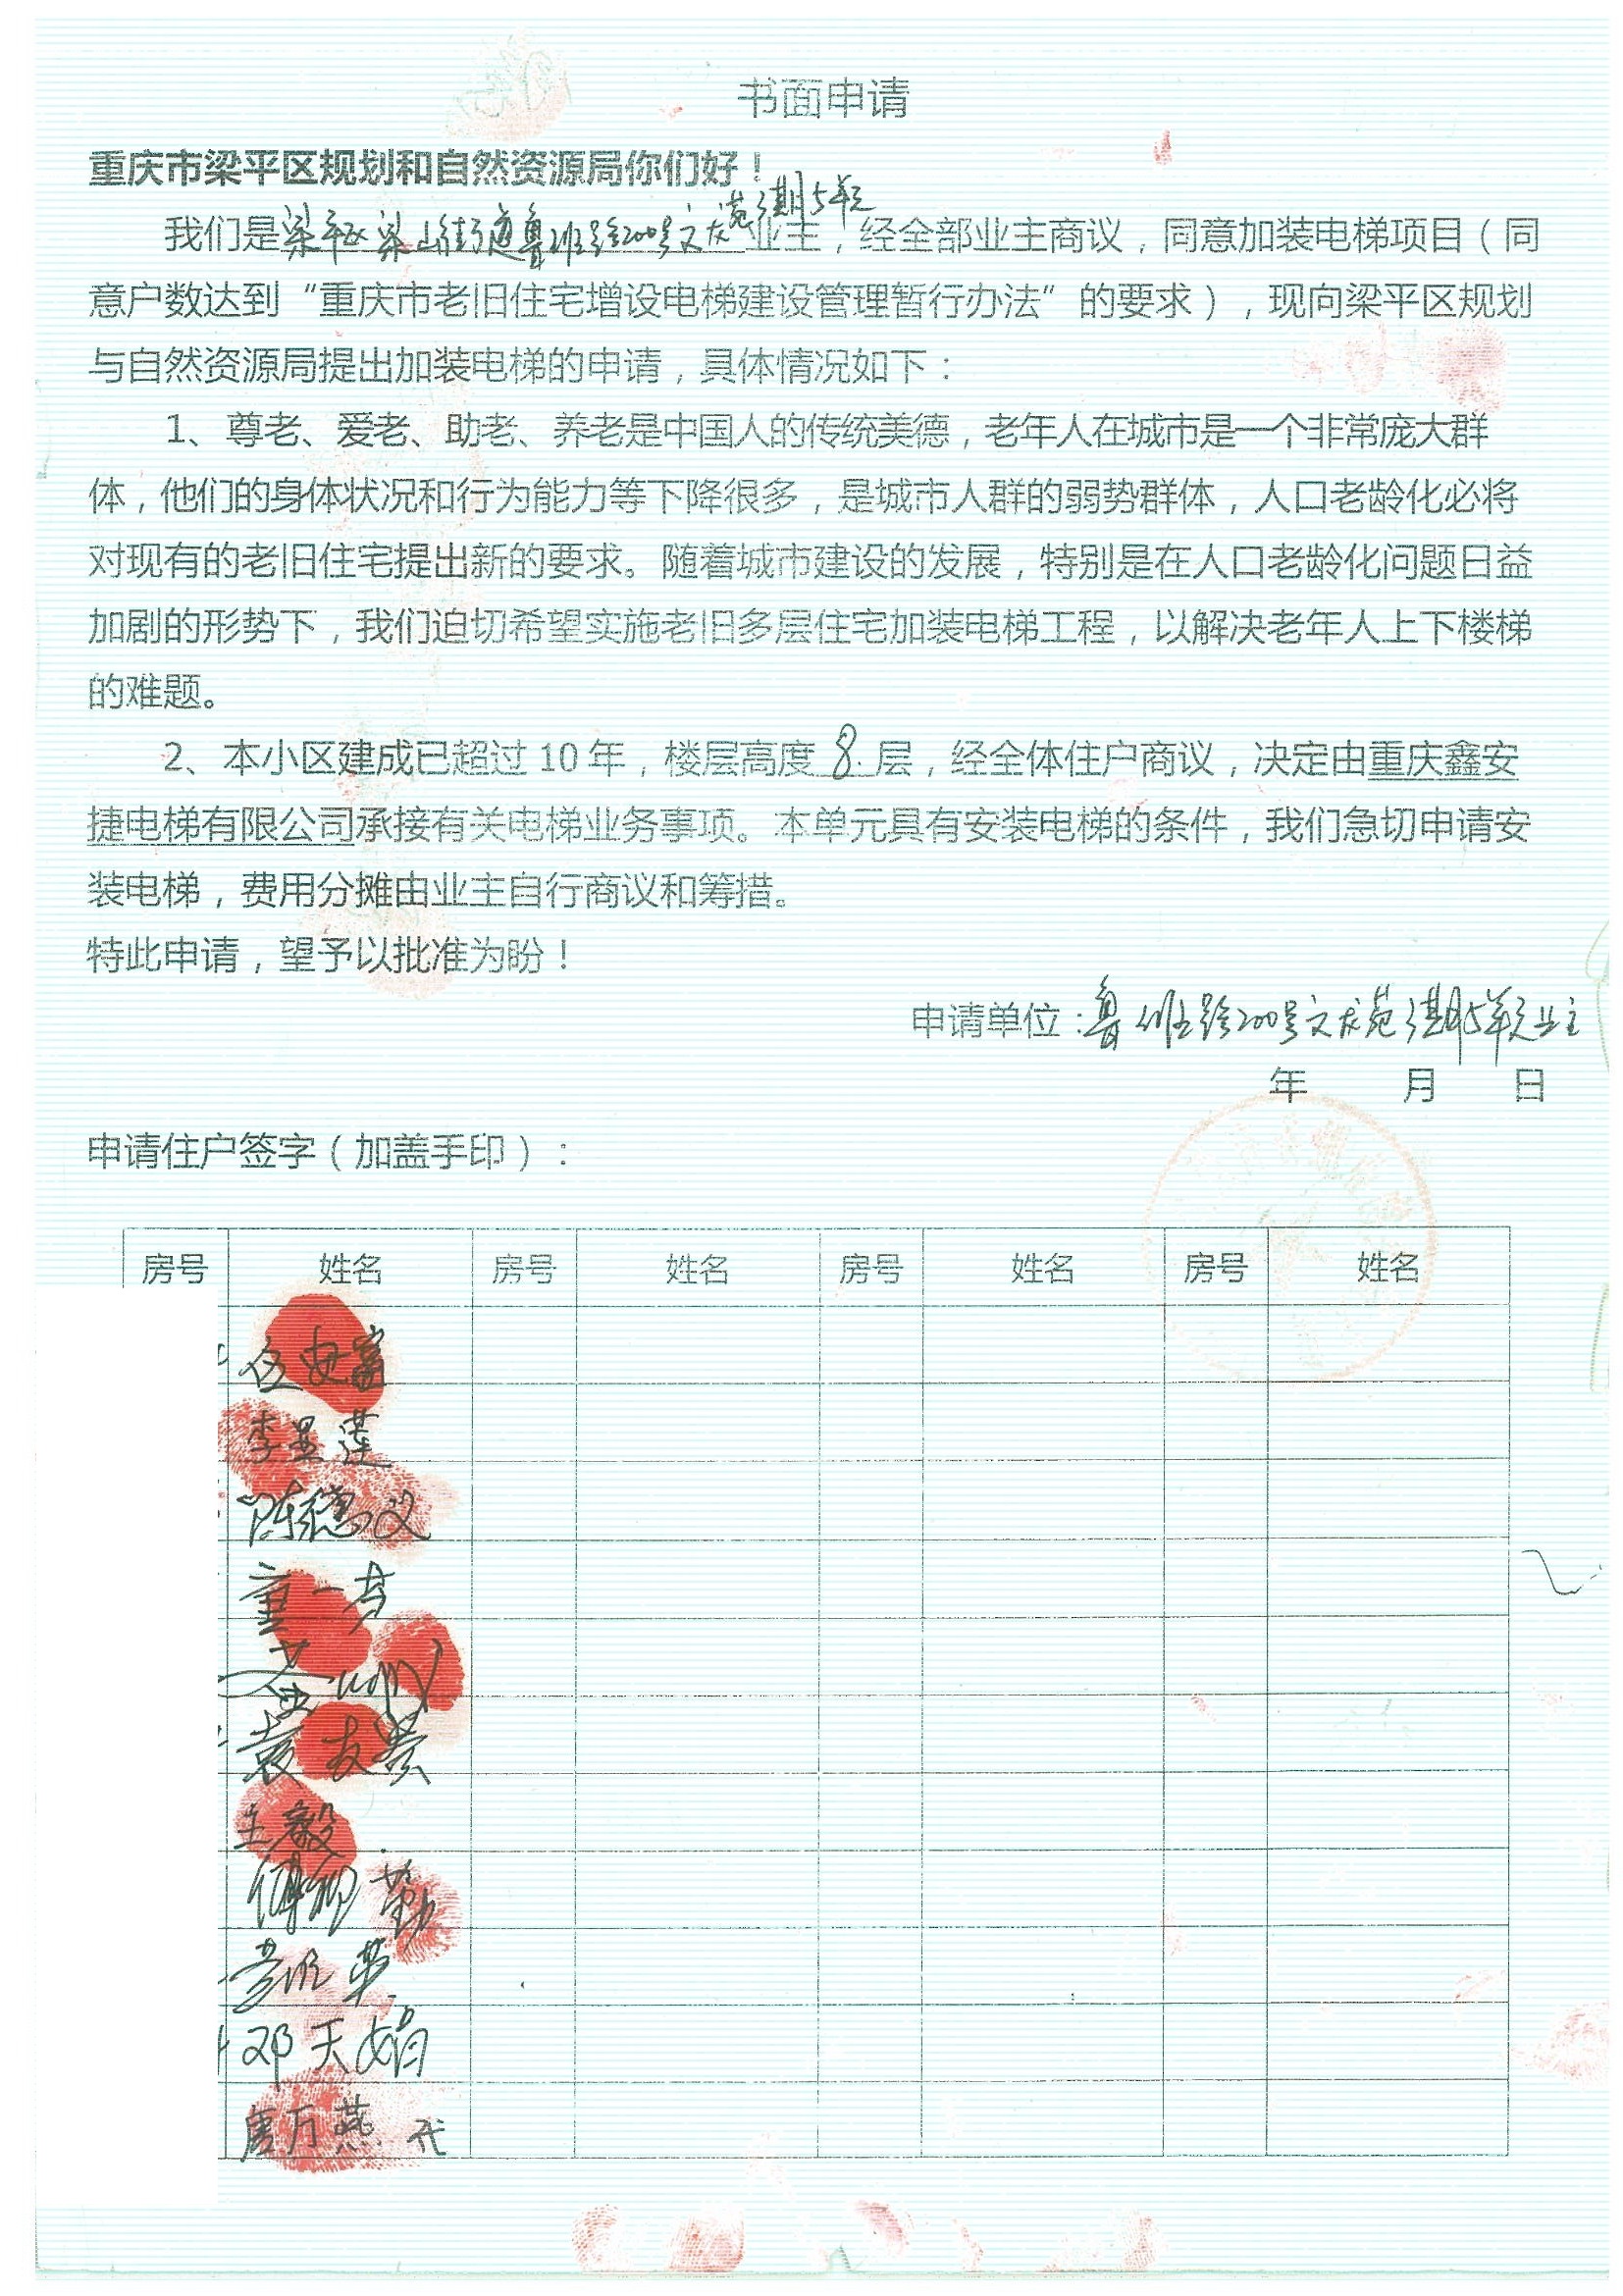 书面申请
重庆市梁平区规划和自然资源局你们好！
我们是梁平区梁山街道鲁班路200号文友苑2期5单元业主，经全部业主商议，同意加装电梯项目（同
意户数达到“重庆市老旧住宅增设电梯建设管理暂行办法”的要求），现向梁平区规划
与自然资源局提出加装电梯的申请，具体情况如下：
1、尊老、爱老、助老、养老是中国人的传统美德，老年人在城市是一个非常庞大群
体，他们的身体状况和行为能力等下降很多，是城市人群的弱势群体，人口老龄化必将
对现有的老旧住宅提出新的要求。随着城市建设的发展，特别是在人口老龄化问题日益
加剧的形势下，我们迫切希望实施老旧多层住宅加装电梯工程，以解决老年人上下楼梯
的难题。
2、本小区建成已超过 10 年，楼层高度 8 层，经全体住户商议，决定由重庆鑫安
捷电梯有限公司承接有关电梯业务事项。本单元具有安装电梯的条件，我们急切申请安
装电梯，费用分摊由业主自行商议和筹措。
特此申请，望予以批准为盼！
申请单位：鲁班路200号文友苑2期5单元业主
年 月 日
申请住户签字（加盖手印）：
房号 姓名 房号 姓名 房号 姓名 房号 姓名
李显莲
陈德义
童一芳
袁友芬
王毅
邓天娟
唐万燕 代